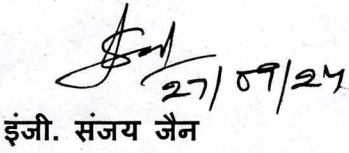 27/09/24
इंजी. संजय जैन